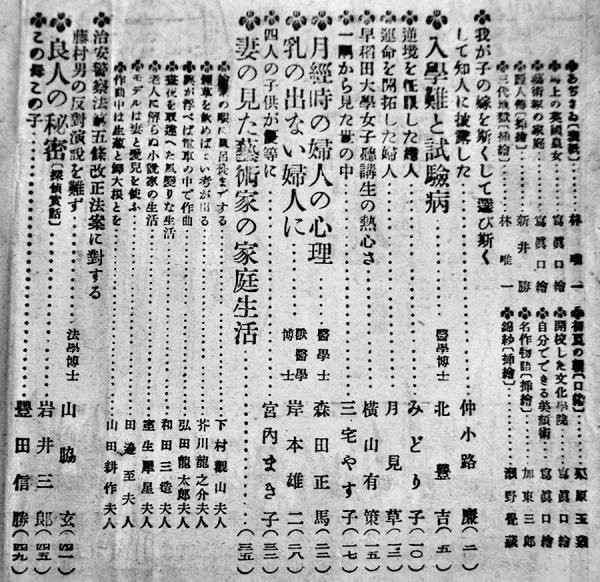 あぢさゐ(表紙)……林唯一
馬上の英國皇女……寫眞口繪
藝術家の家庭……寫眞口繪
麗人傳(挿繪)……新井勝
三代地獄(挿繪)……林唯一
初夏の(口繪)……栗原玉葉
開校した文化學院……寫眞口繪
自分でできる美顔術……寫眞口繪
名作物語(挿繪)……加東三郎
錦紗(挿繪)……瀬野覺蔵
我が子の嫁を斯くして選び斯く
して知人に披露した……仲小路廉(二)
入學難と試驗病……醫學博士 北豐吉(五)
逆境を征服した婦人……みどり子(一〇)
運命を開拓した婦人……月見草(一三)
早稻田大學女子聽講生の熱心さ……横山有策(一五)
一隅から見た世の中……三宅やす子(一七)
月經時の婦人の心理……醫學士 森田正馬(二二)
乳の出ない婦人に……獸醫學博士 岸本雄二(二八)
四人の子供が優等に……宮内まき子(三二)
妻の見た藝術家の家庭生活……(三五)
繪筆の暇に風呂焚までする……下村觀山夫人
煙草を飮めばよい考が出る……芥川龍之介夫人
興が浮べば電車の中で作曲……弘田龍太郎夫人
晝夜を取違へた風變りな生活……和田三造夫人
老人に解らぬ小說家の生活……室生犀星夫人
モデルは妻と愛兒を使ふ……田邊至夫人
作曲中は生蔥と大根とを……山田耕作夫人
治安警察法第五條改正法案に對する
藤村男の反對演說を難ず……法學博士 山脇玄(四一)
良人の秘密(探偵實話)……岩井三郎(四五)
この母この子……豐田信勝(四九)